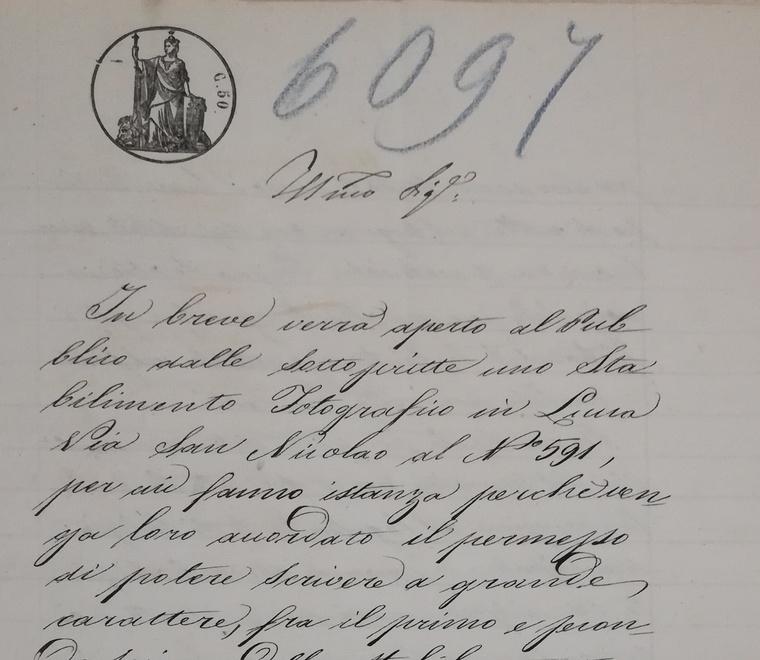 C. 50.
6097
Ill.mo Sig.re
In breve verrà aperto al Pub
blico dalle sottoscritte uno Sta
bilimento Fotografico in Lucca
Via San Nicolao al N.o 591,
per cui fanno istanza perchè ven-
ga loro accordato il permesso
di potere scrivere a grande
carattere, fra il primo e secon-
do